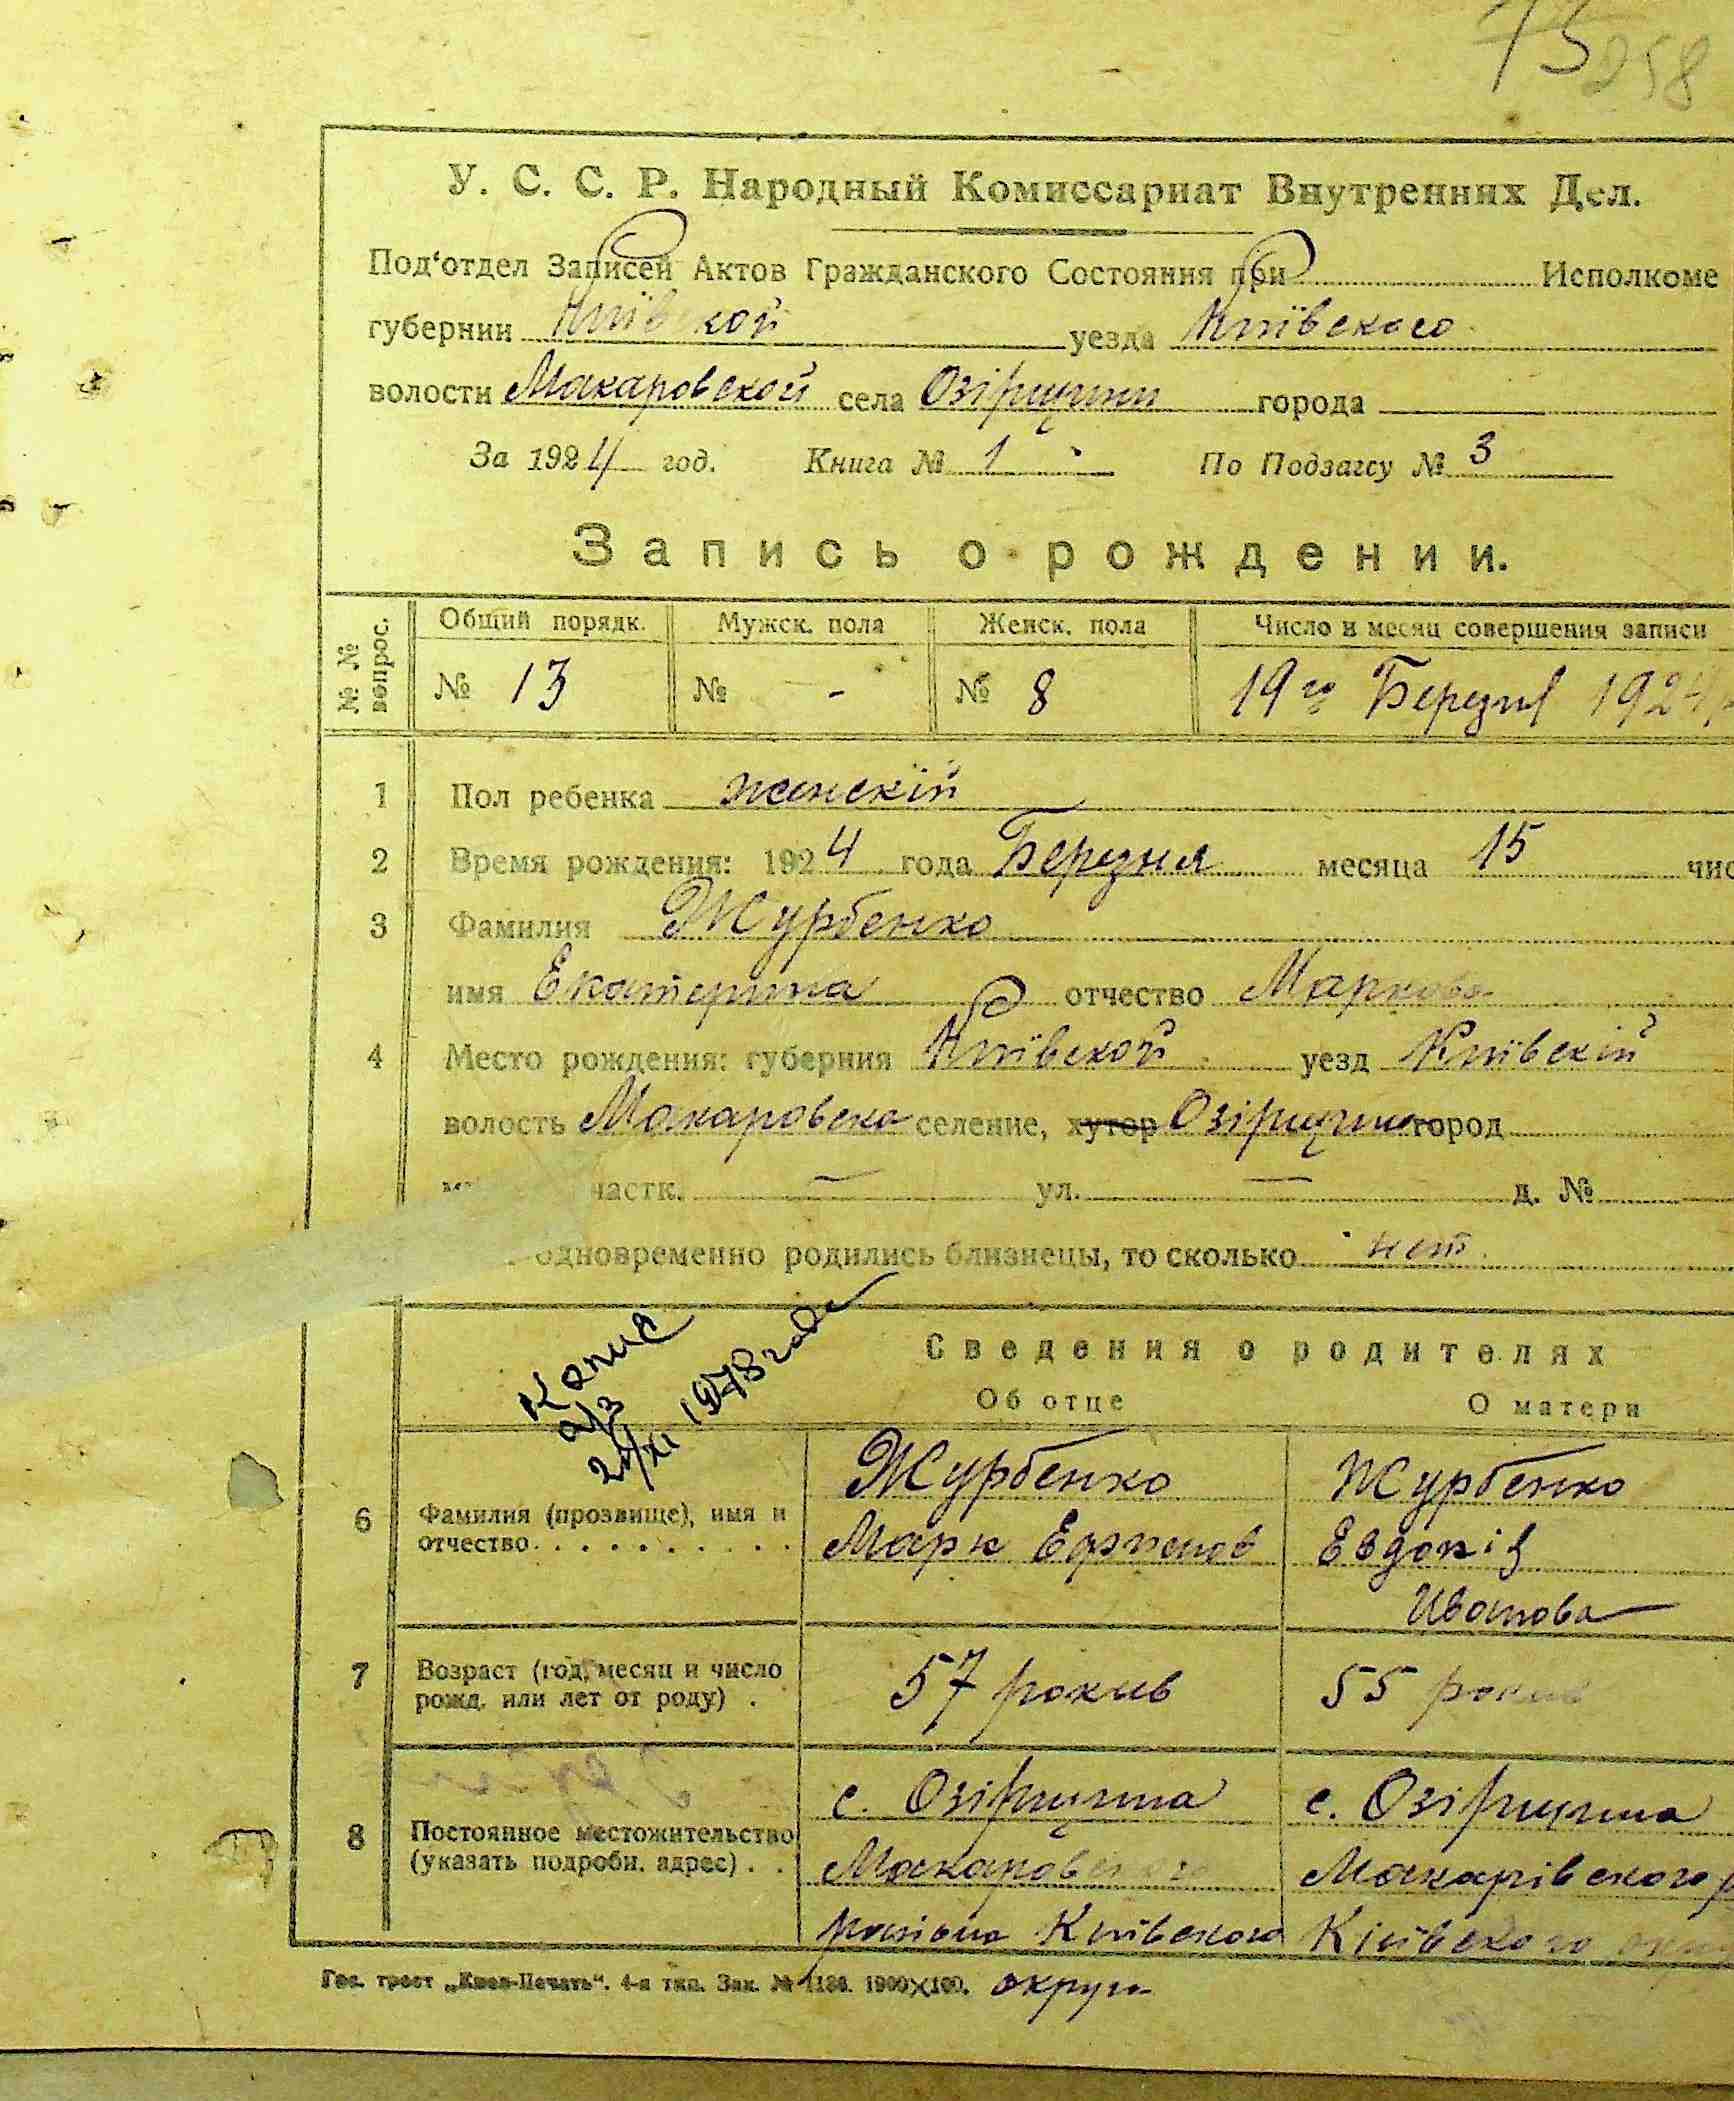 75 258
У. С. С. Р. Народный Комиссариат Внутренних Дел.
Под‘отдел Записей Актов Гражданского Состояния при Исполкоме
губернии Київской уезда Київского
волости Макаровской села Озірщини города
За 1924 год. Книга № 1 По Подзагсу № 3
Запись о рождении.
№ № вопрос. Общий порядк. Мужск. пола Женск. пола Число и месяц совершения записи
№ 13 № - № 8 19го Березня 1924
1 Пол ребенка женскій
2 Время рождения: 1924 года Березня месяца 15 чис
3 Фамилия Журбенко
имя Екатерина отчество Маркова
4 Место рождения: губерния Київской уезд Київскій
волость Макаровска селение, хутор Озірщини город
частк. — ул. — д. №
одновременно родились близнецы, то сколько нет.
Копия
а/з
1978 года
Сведения о родителях
Об отце О матери
6 Фамилия (прозвище), имя и отчество. Журбенко Марк Ефимов Журбенко Евдокія Иванова
7 Возраст (год, месяц и число рожд. или лет от роду) . 57 рокив 55 рокив
8 Постоянное местожительство (указать подробн. адрес) . . с. Озірщина Макаровского району Київского округи с. Озірщина Макарівского р Київского
Гос. трест „Киев-Печать“. 4-я тип. Зак. № 1186. 1900×100.